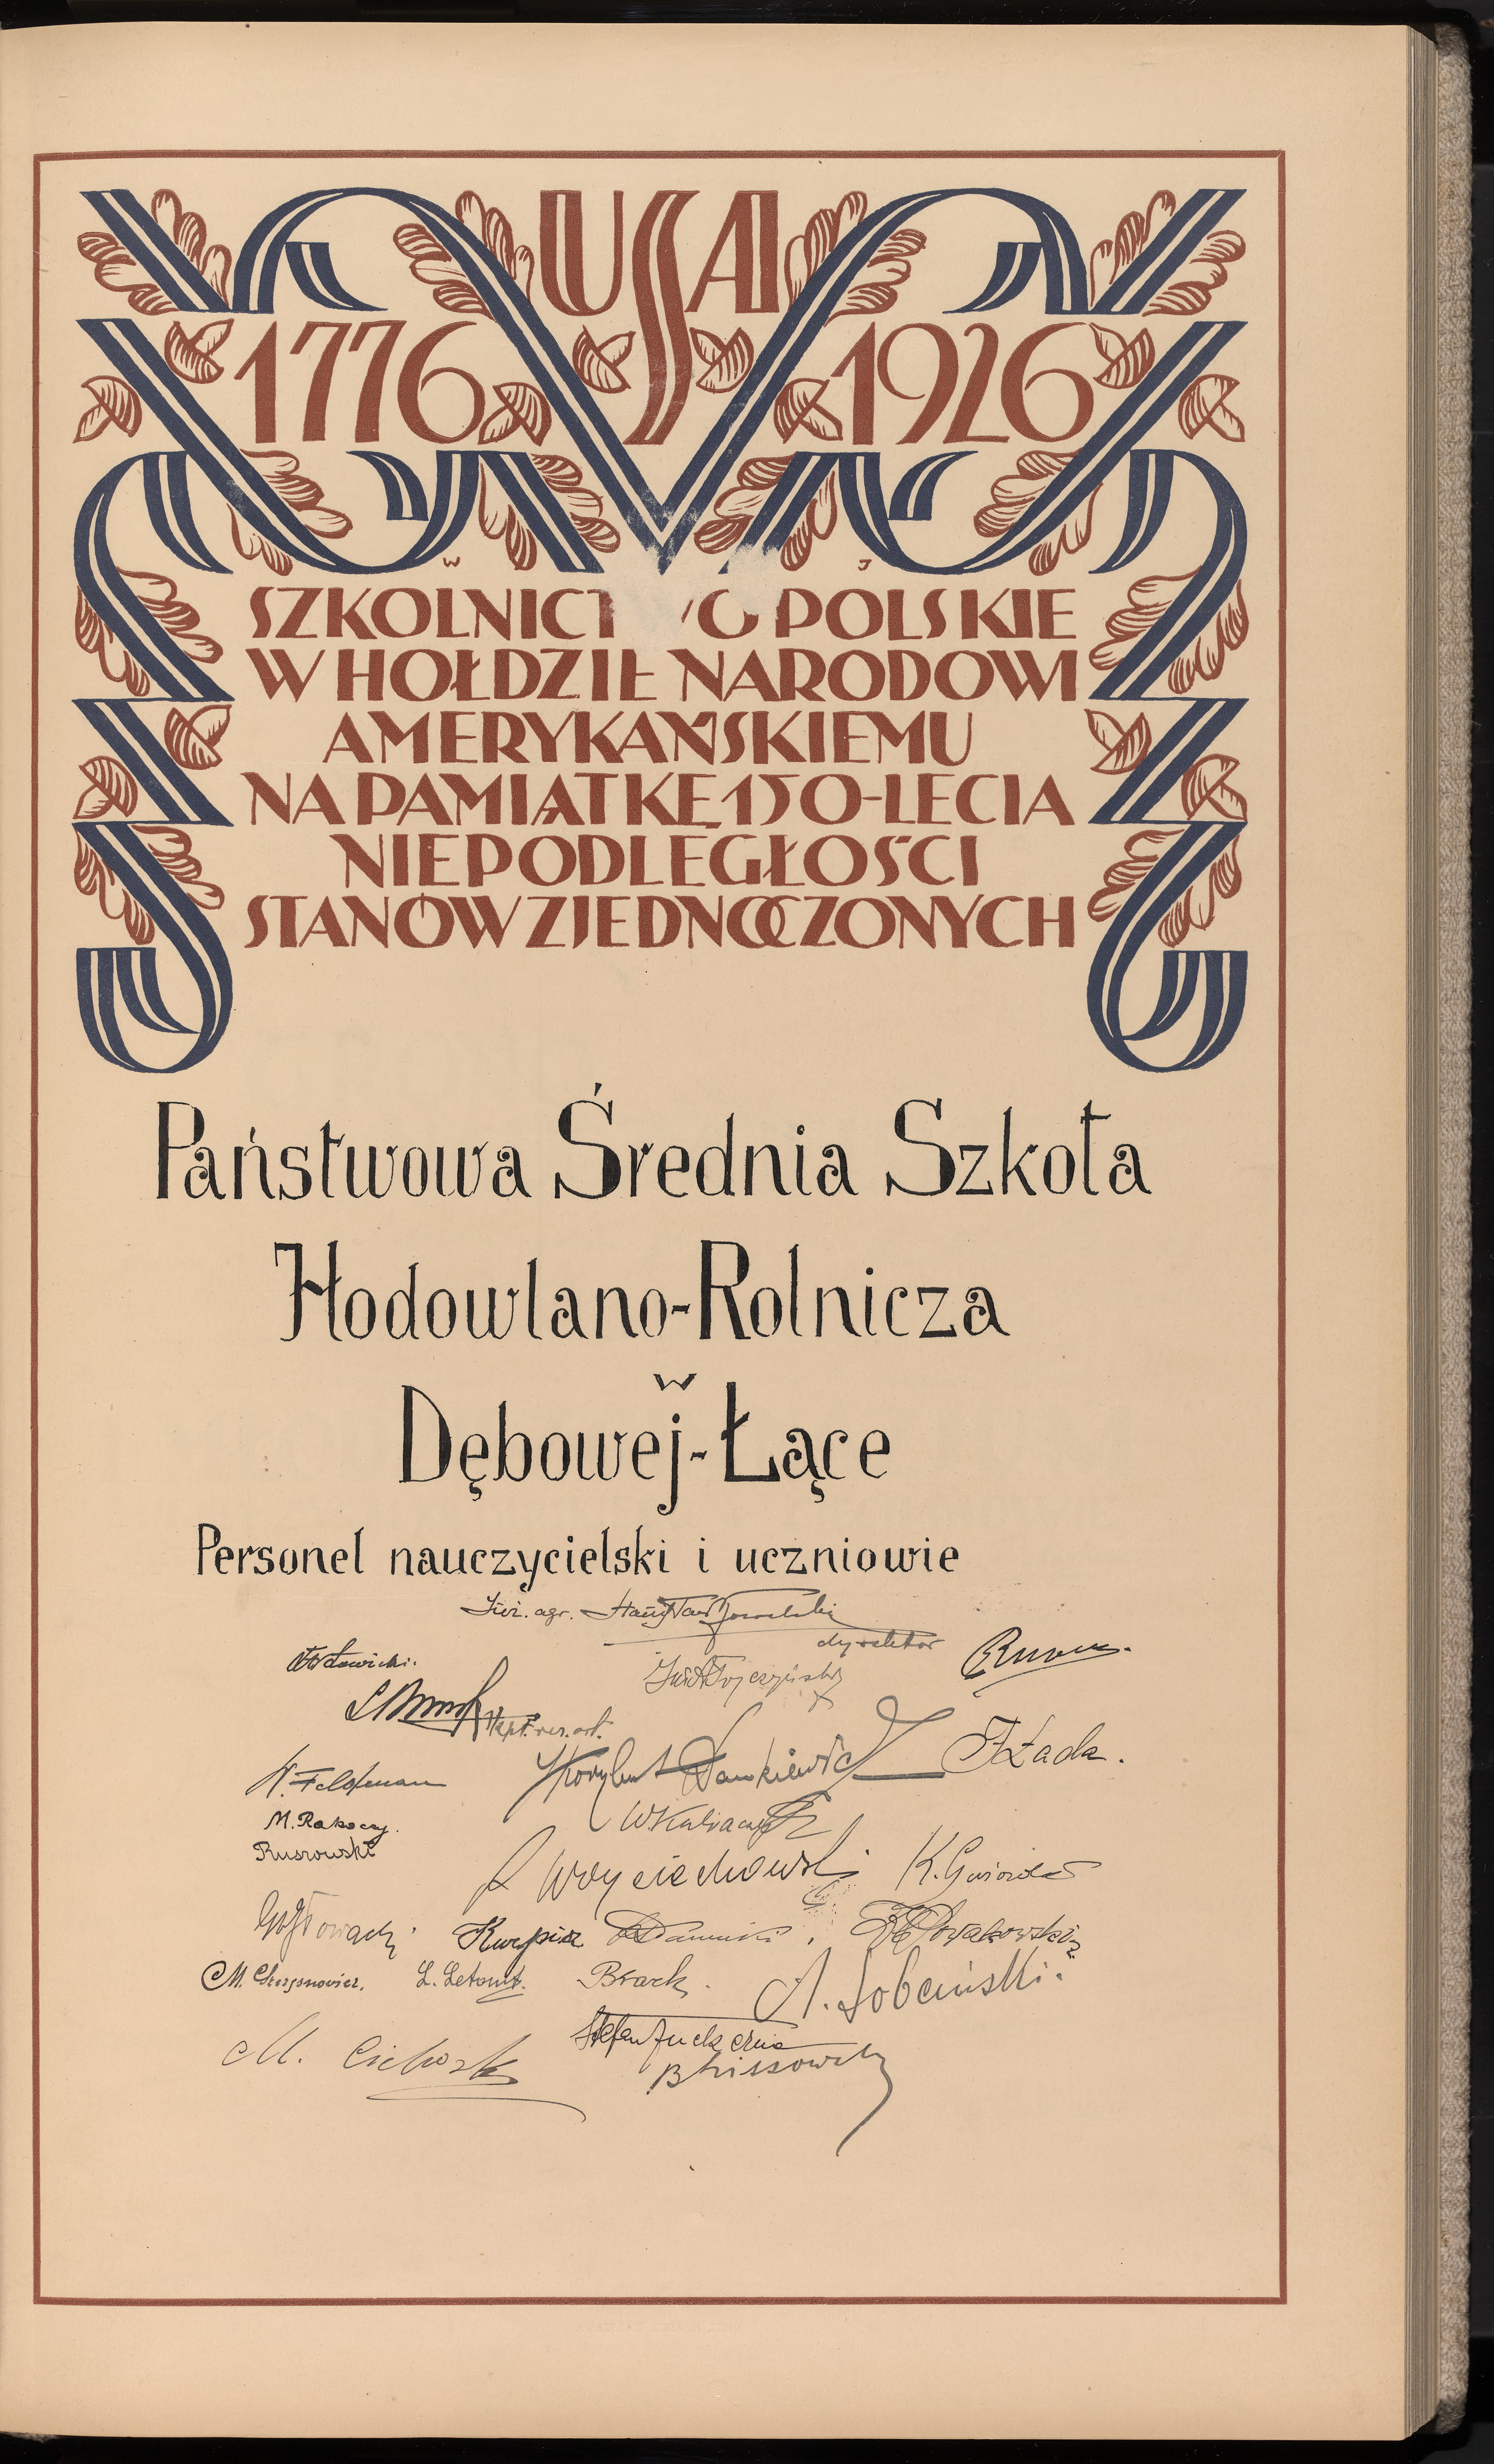 USA
1776 1926
W J
SZKOLNICTWO POLSKIE
W HOŁDZIE NARODOWI
AMERYKAŃSKIEMU
NA PAMIĄTKĘ 150-LECIA
NIEPODLEGŁOŚCI
STANÓW ZJEDNOCZONYCH
Państwowa Średnia Szkoła
Hodowlano-Rolnicza
w
Dębowej-Łące
Personel nauczycielski i uczniowie
Inż. agr.
dyrektor
kpt. rez. art.
W. Feldman
F Łada.
M. Rakoczy.
Rusowski
Woyciechowski K. Gwiazda
Kurpisz
L. Letownt. Brack.
A. Sobciński.
M. Cichorek
Stefan Zuckernia